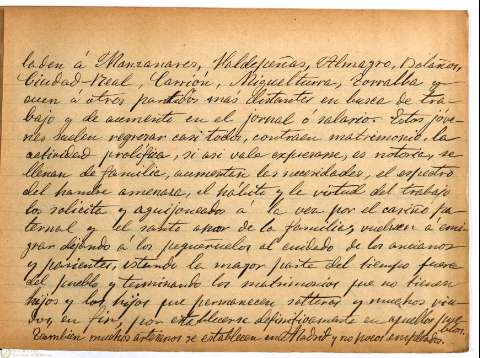 laden á Manzanares, Valdepeñas, Almagro, Bolaños,
Ciudad-Real, Carrión, Miguelturra, Torralba y
aun á otros partidos mas distantes en busca de tra-
bajo y de aumento en el jornal ó salario. Estos jóve-
nes suelen regresar casi todos, contraen matrimonio, la
actividad prolífica, si asi vale expresarse, es notoria, se
llenan de familia, aumentan las necesidades, el espectro
del hambre amenaza, el hábito y la virtud del trabajo
los solicita y aguijoneados á la vez por el cariño pa-
ternal y el santo amor de la familia, vuelven a emi-
grar dejando á los pequeñuelos al cuidado de los ancianos
y parientes, estando la mayor parte del tiempo fuera
del pueblo y terminando los matrimonios que no tienen
hijos y los hijos que permanecen solteros y muchos viu-
dos, en fin, por establecerse definitivamente en aquellos pue-
blos.
Tambien muchos artesanos se establecen en Madrid y no pocos empleados.